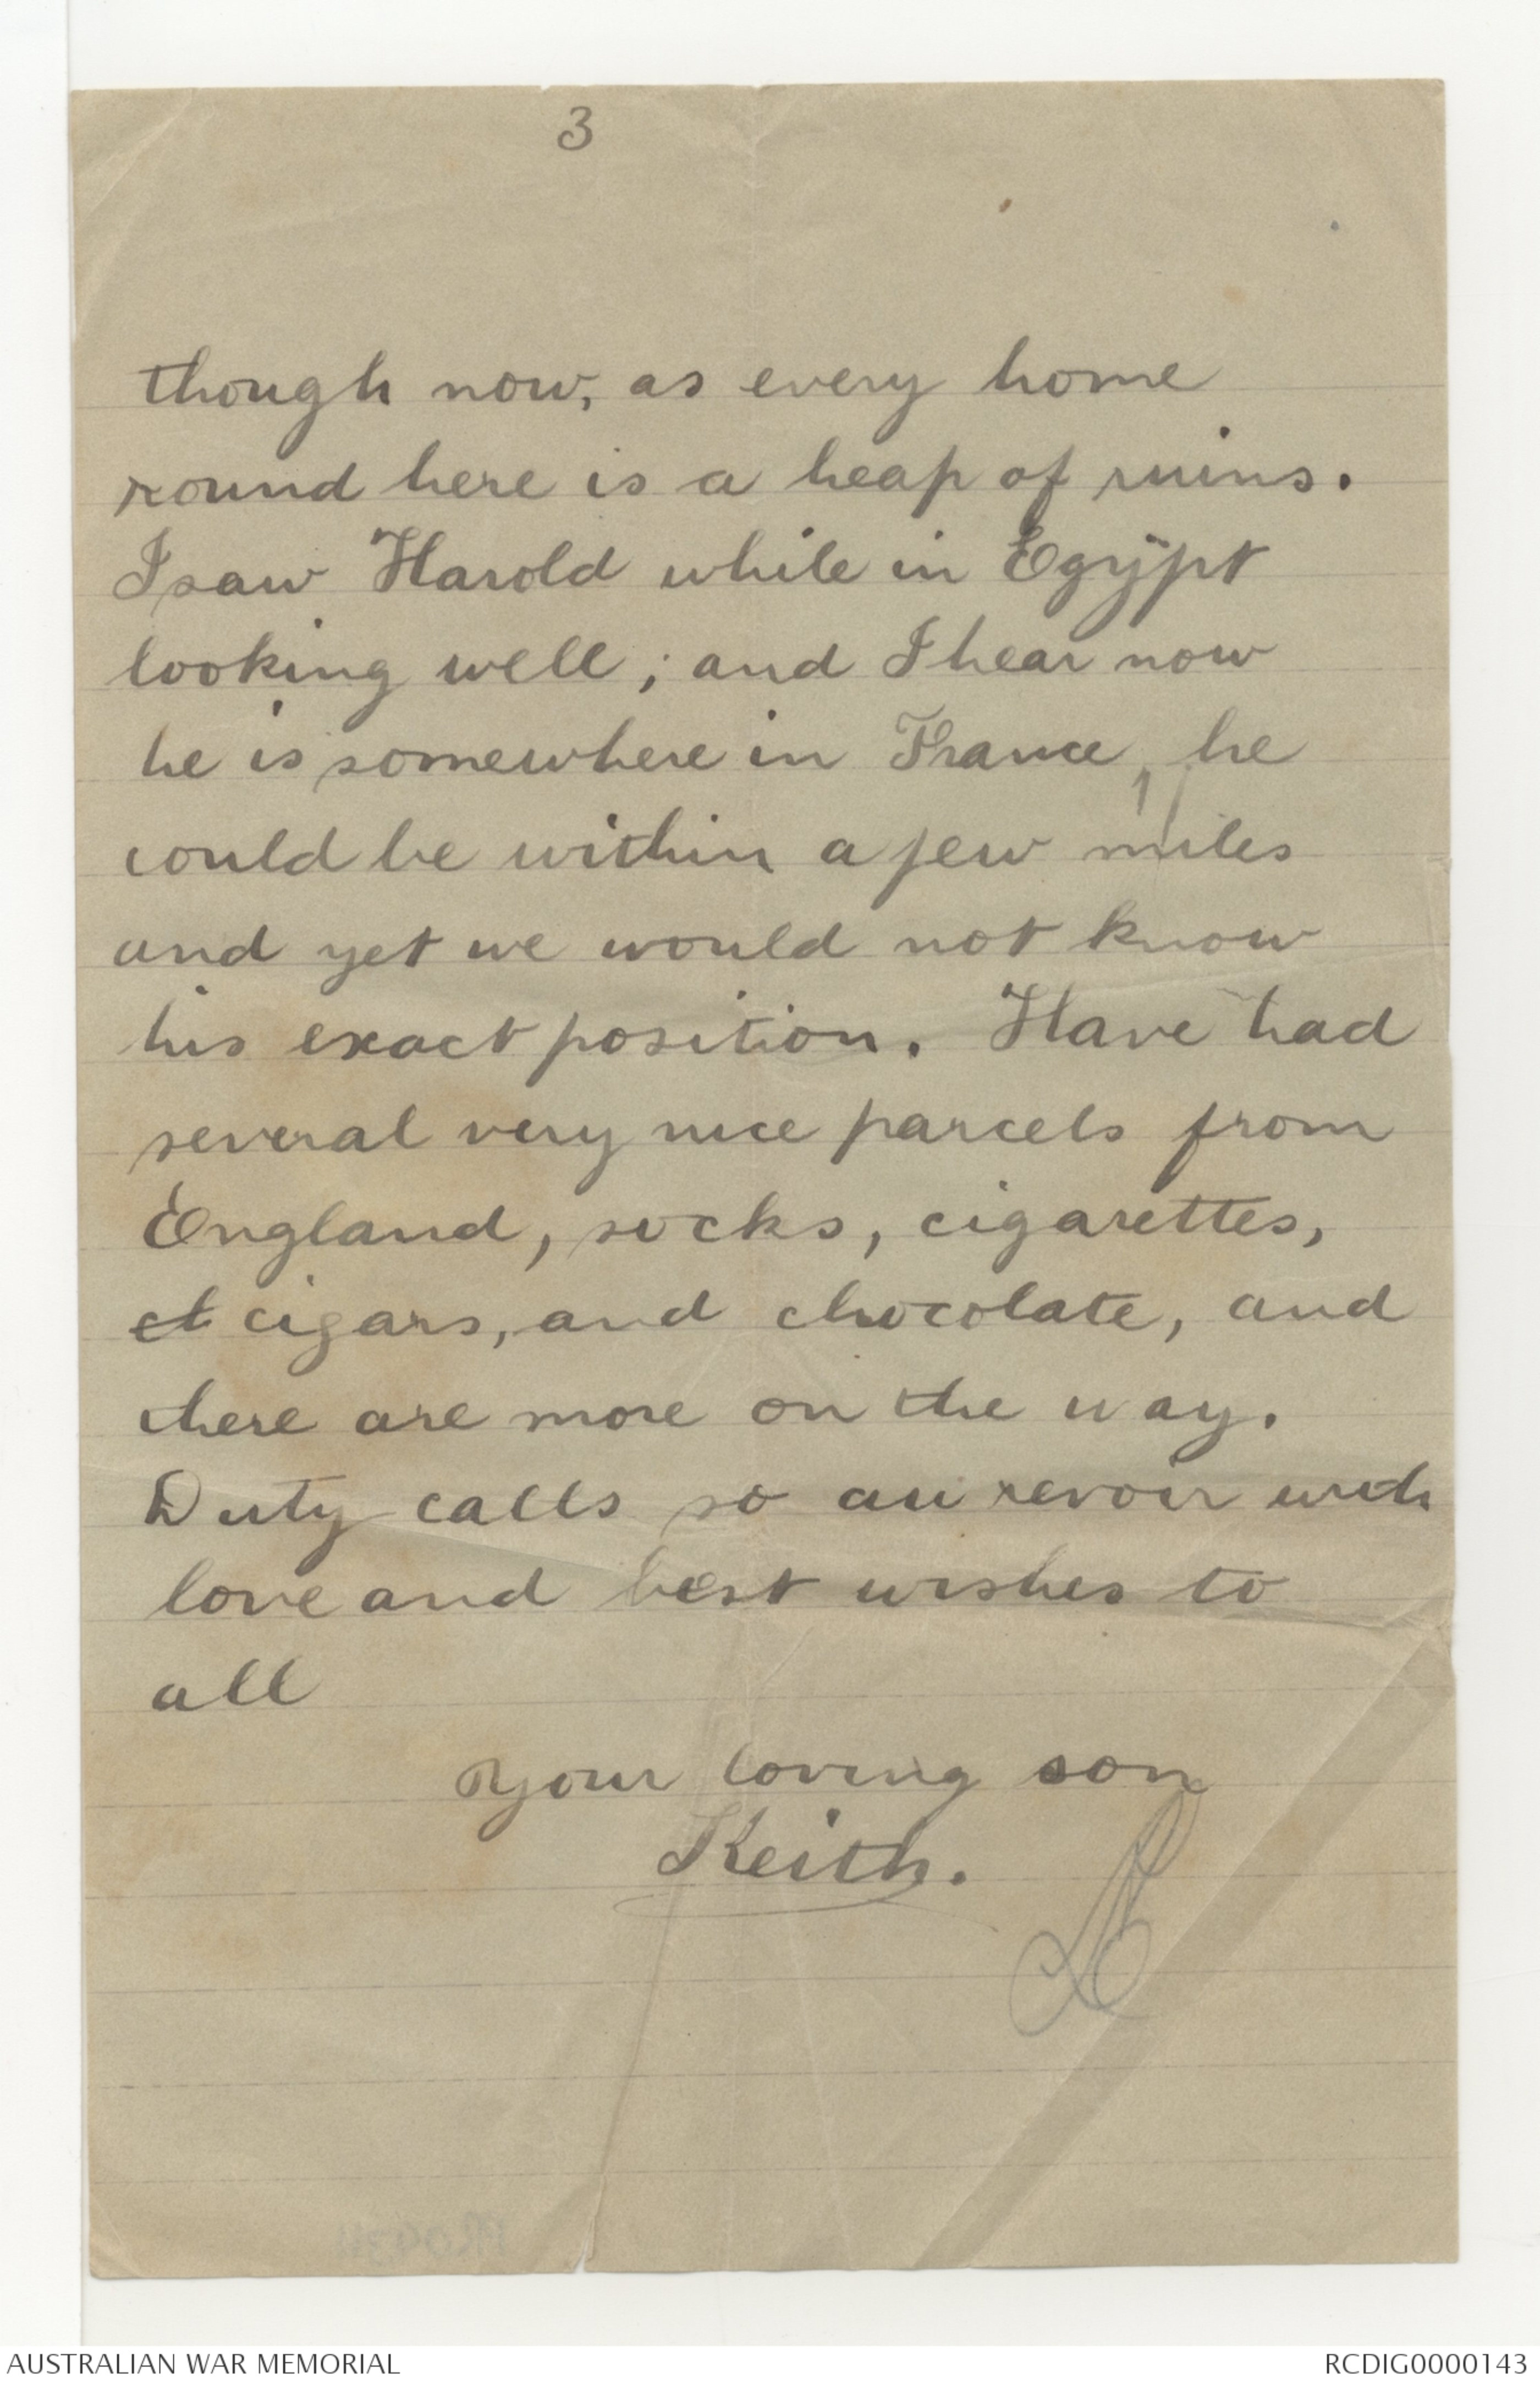 3
though now, as every home
round here is a heap of ruins.
I saw Harold while in Egypt
looking well; and I hear now
he is somewhere in France, he
could be within a few miles
and yet we would not know
his exact position. Have had
several very nice parcels from
England, socks, cigarettes,
ch cigars, and chocolate, and
there are more on the way.
Duty calls so au revoir with
love and best wishes to
all
Your loving son
Keith.
AUSTRALIAN WAR MEMORIAL
RCDIG0000143